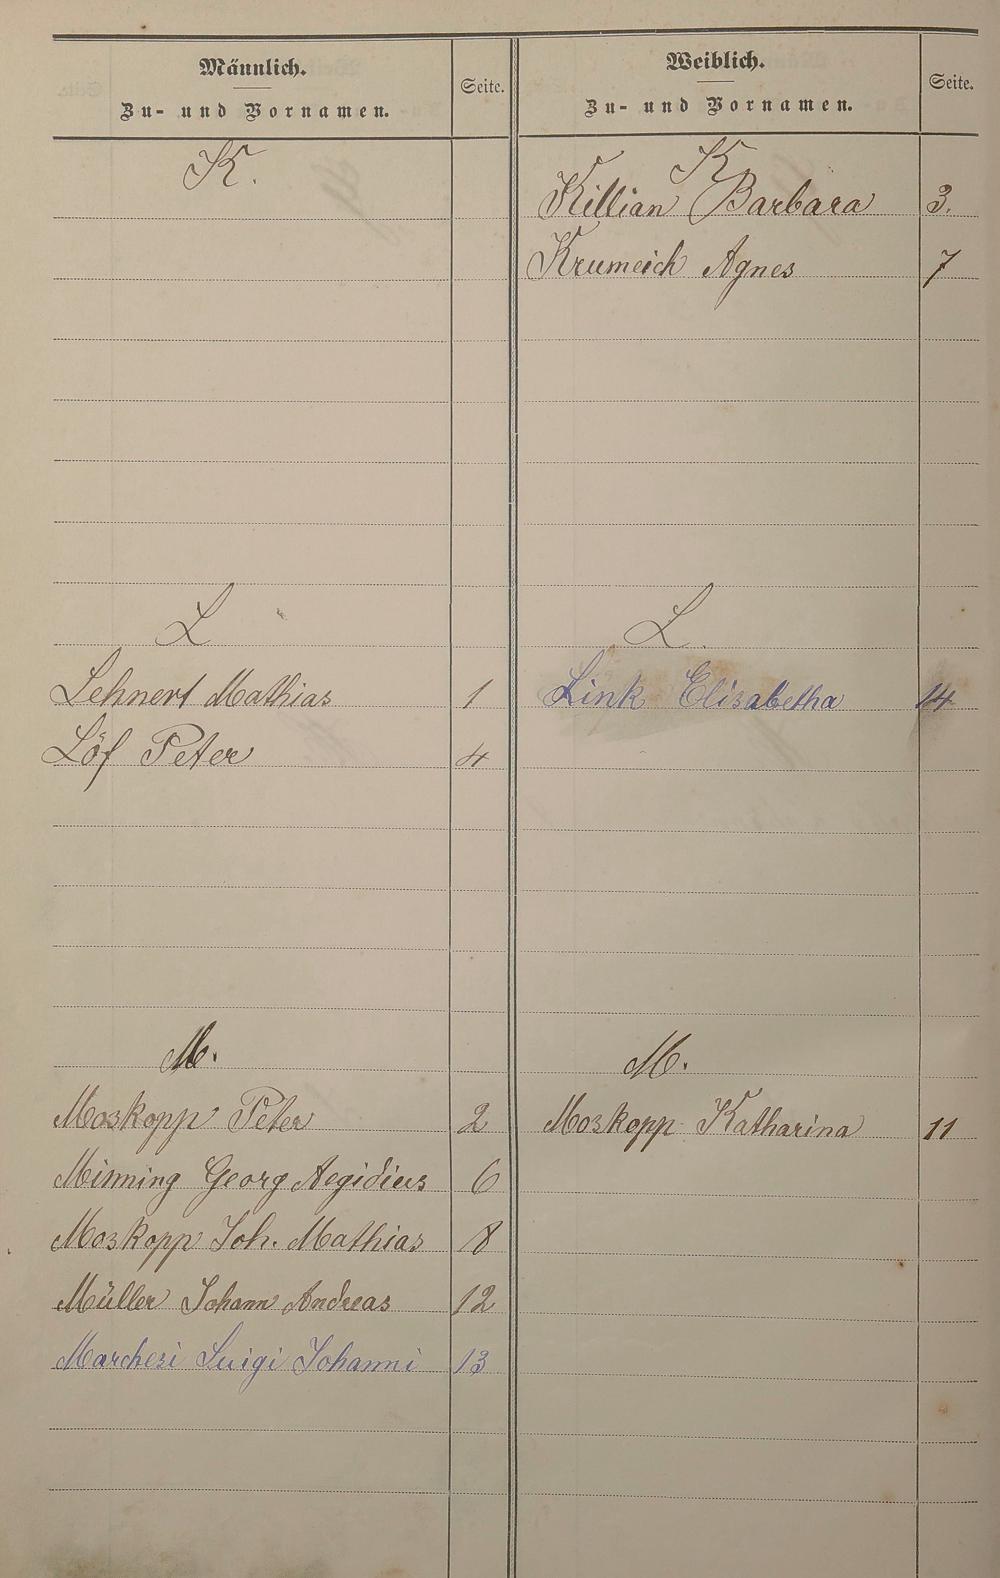 Männlich.
Zu- und Vornamen.
Seite.
K.
L
Lehnert Mathias 1
Löf Peter 4
M.
Moskopp Peter 2
Minning Georg Aegidius 6
Moskopp Joh. Mathias 8
Müller Johann Andreas 12
Marchesi Luigi Johanni 13
Weiblich.
Zu- und Vornamen.
Seite.
K
Killian Barbara 3.
Krumeich Agnes 7
L.
Link Elisabetha 14
M.
Moskopp Katharina 11